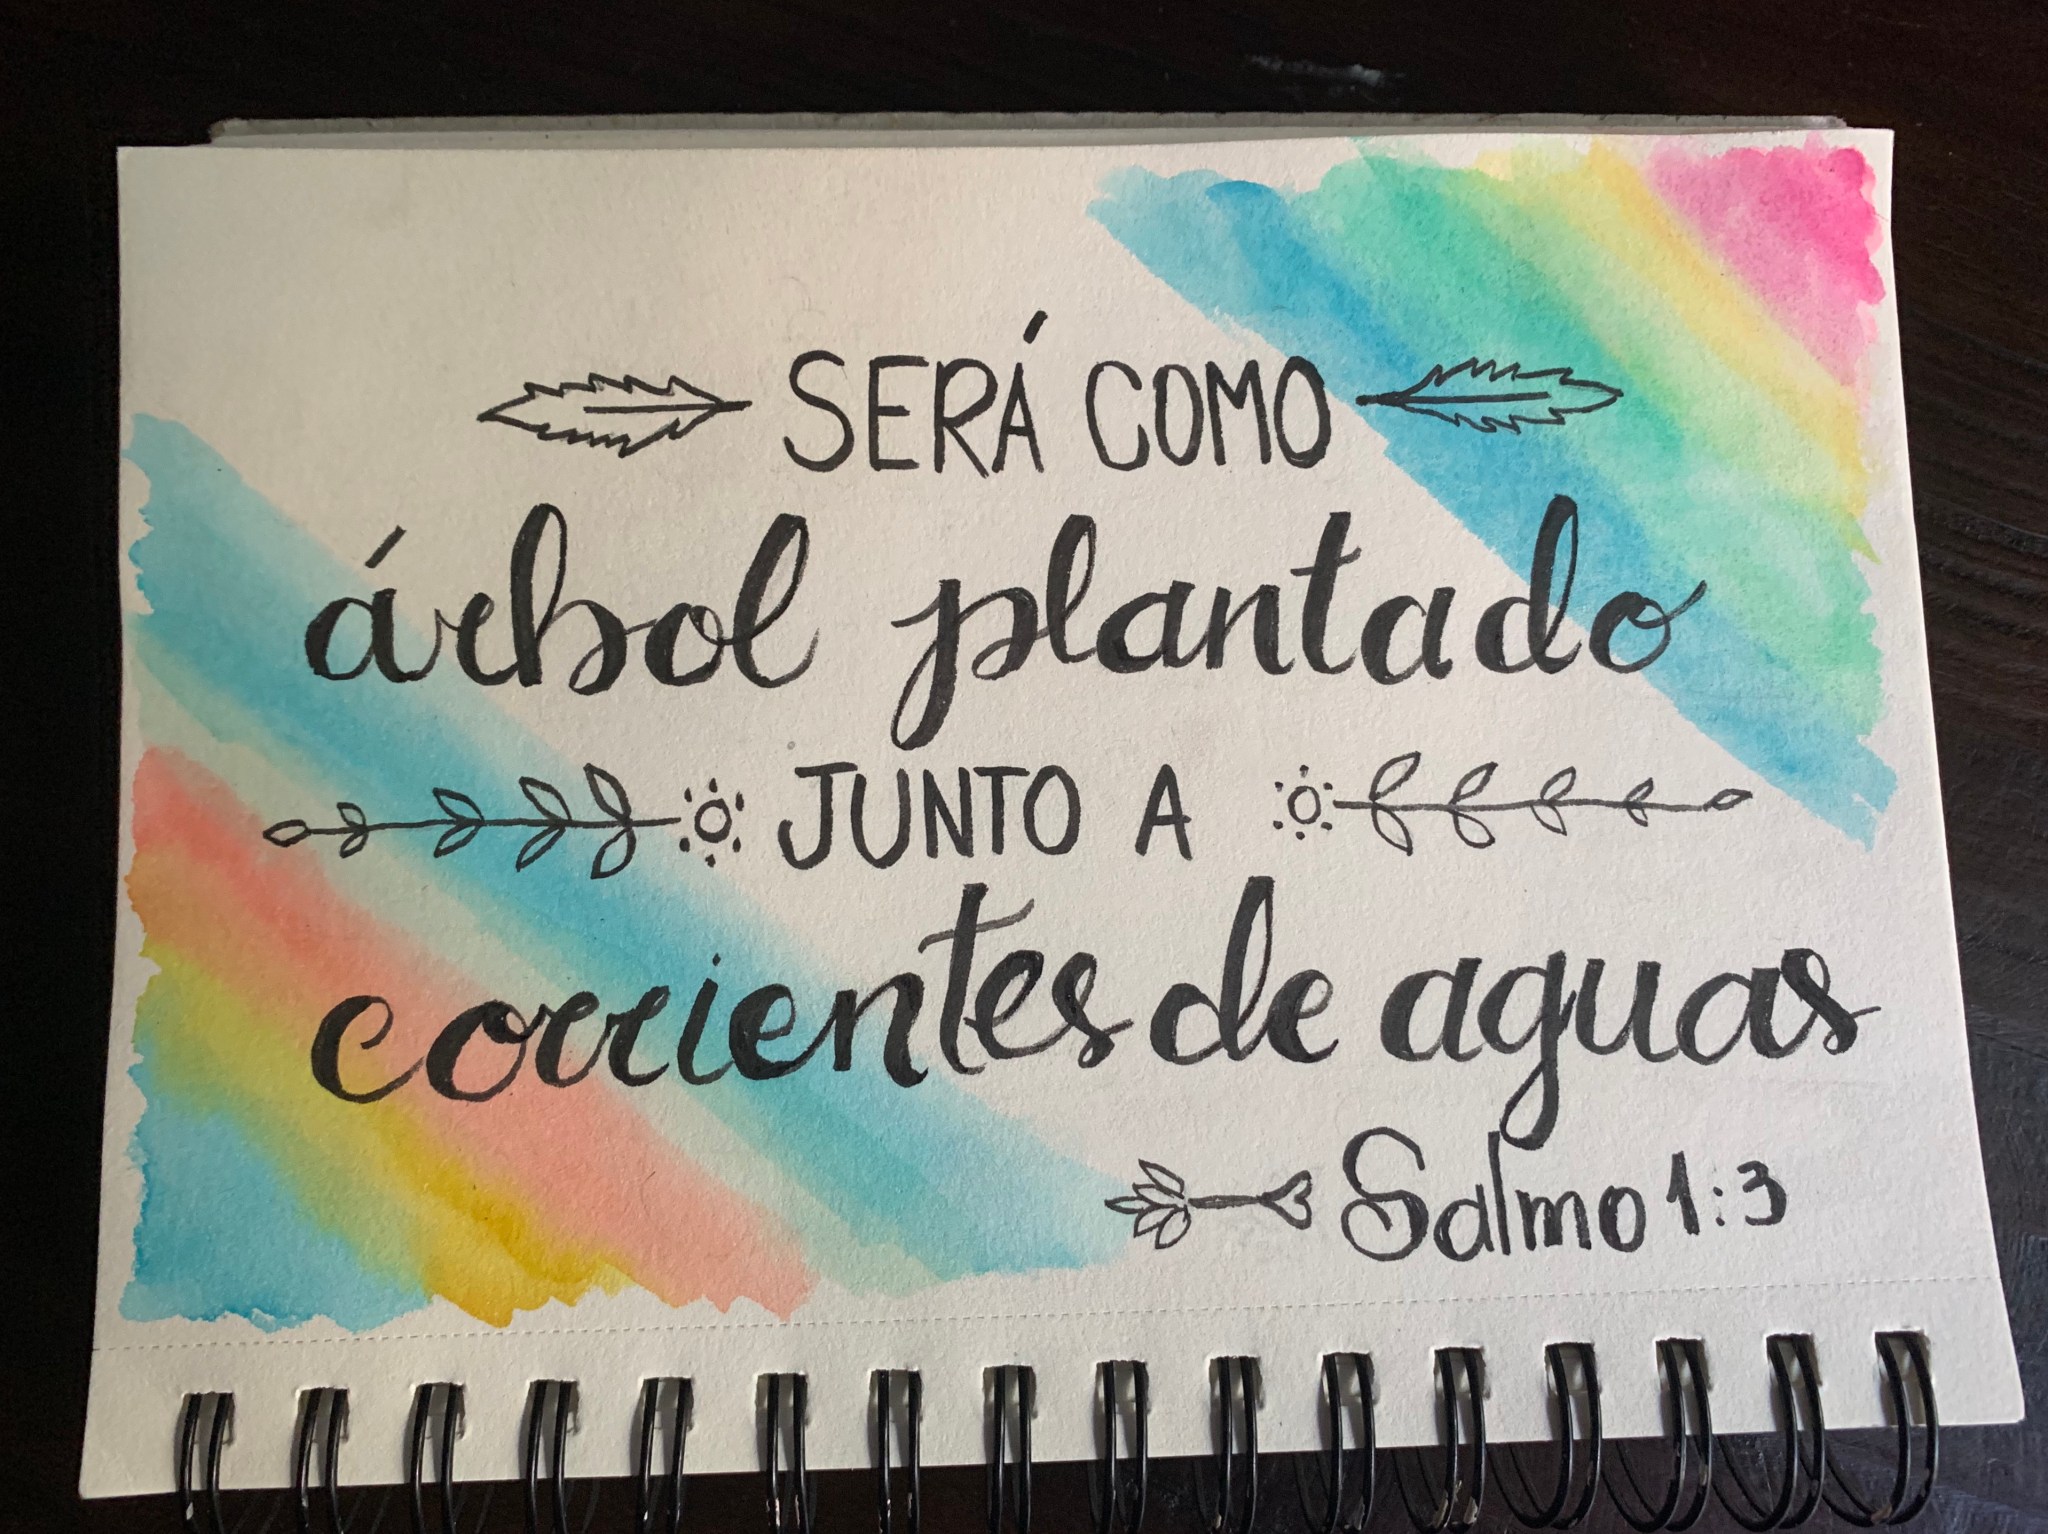 SERÁ COMO
árbol plantado
JUNTO A
corrientes de aguas
Salmo 1:3